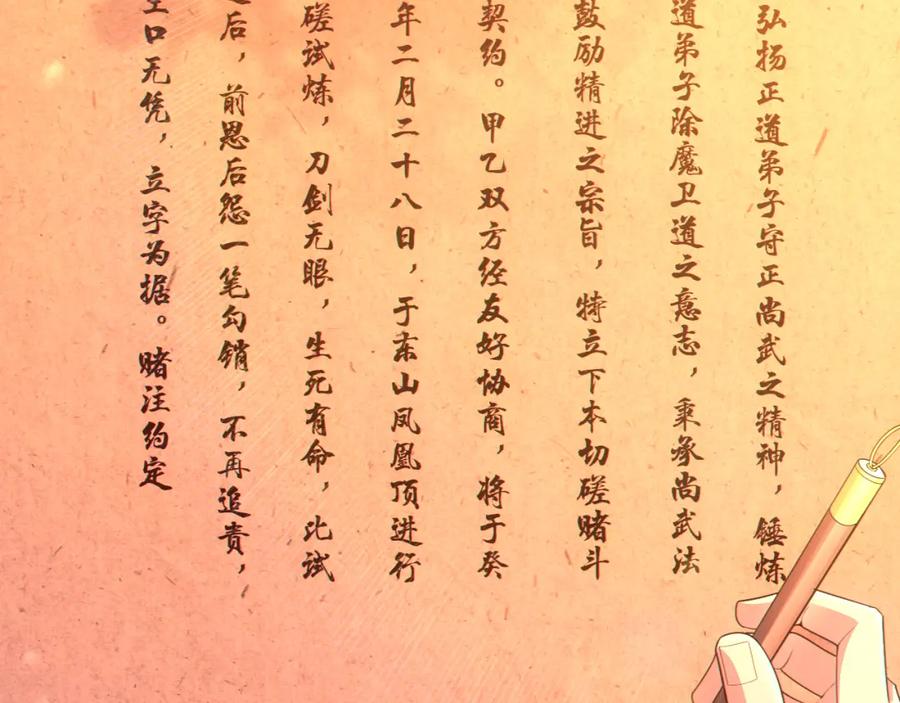 弘扬正道弟子守正尚武之精神，锤炼
道弟子除魔卫道之意志，秉承尚武法
鼓励精进之宗旨，特立下本切磋赌斗
契约。甲乙双方经友好协商，将于癸
年二月二十八日，于东山凤凰顶进行
磋试炼，刀剑无眼，生死有命，比试
后，前恩后怨一笔勾销，不再追责，
口无凭，立字为据。赌注约定